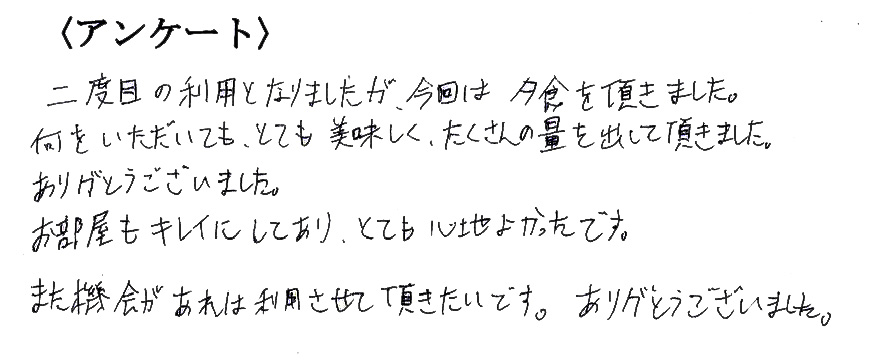 〈アンケート〉
二度目の利用となりましたが、今回は夕食を頂きました。
何をいただいても、とても美味しく、たくさんの量を出して頂きました。
ありがとうございました。
お部屋もキレイにしてあり、とても心地よかったです。
また機会があれば利用させて頂きたいです。ありがとうございました。